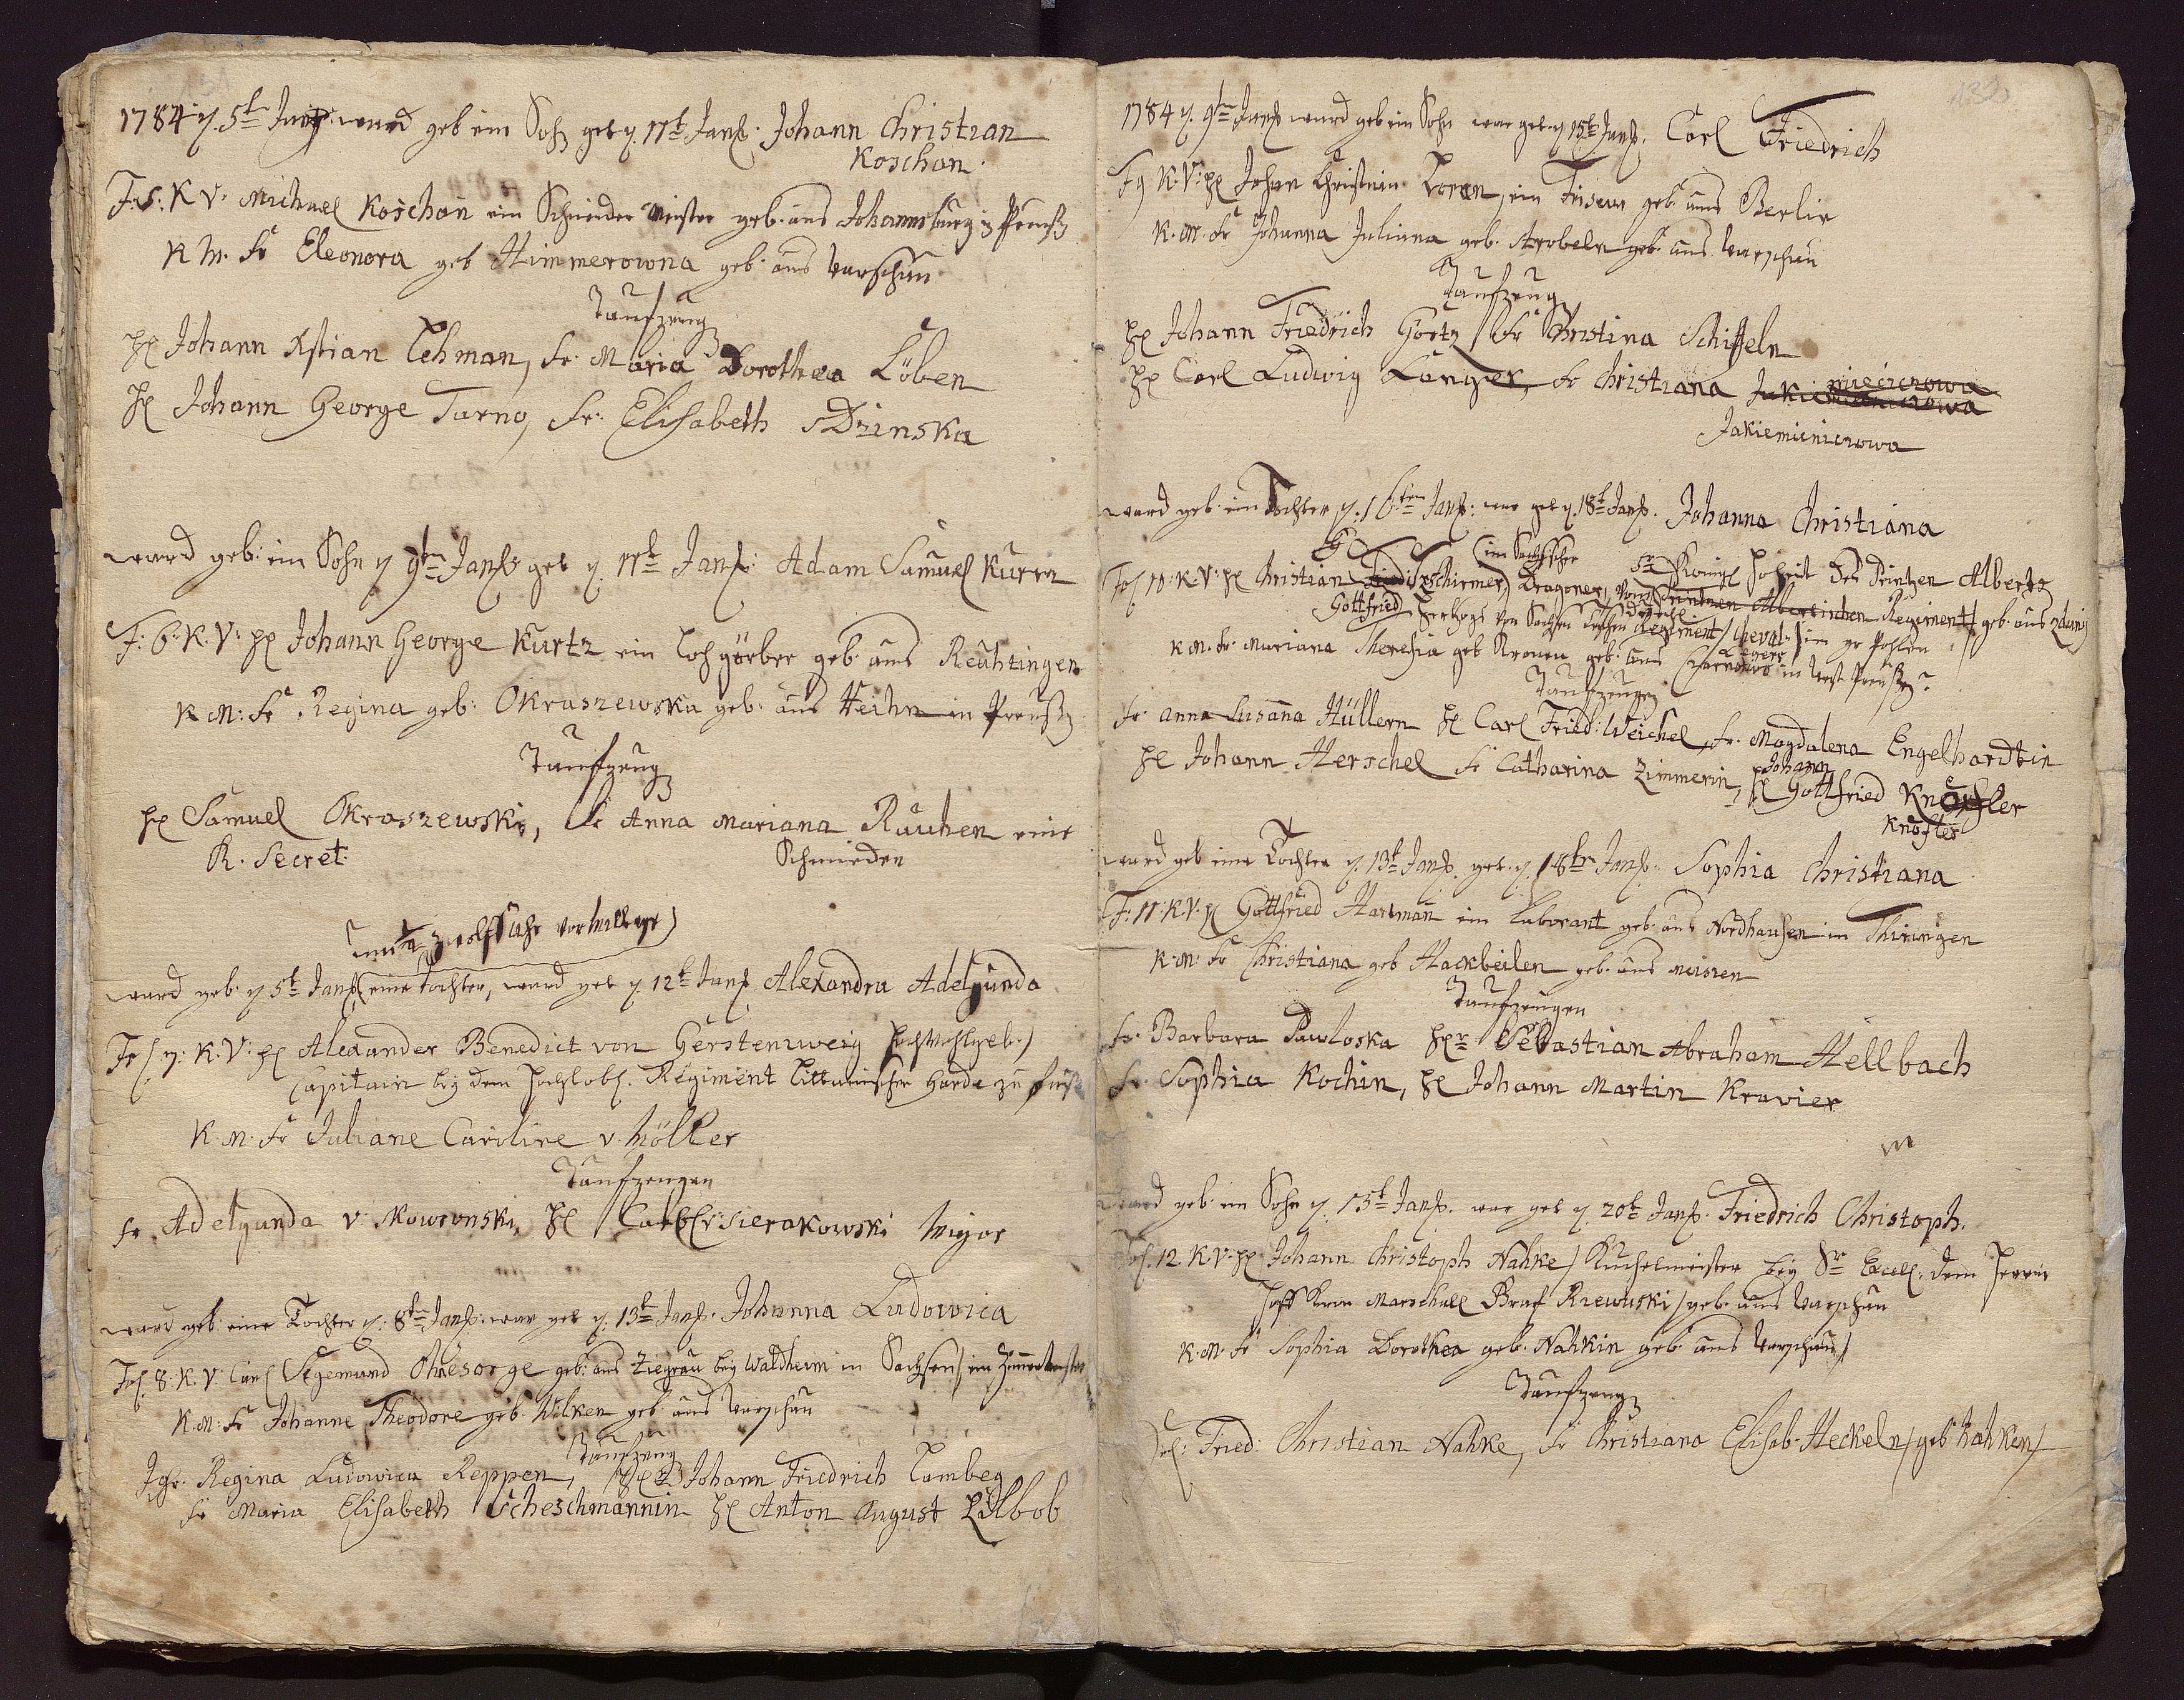 1784 d. 5t Janr. ward geb ein Sohn get d. 11t Janr. Johann Christian
Koschan.
F. 5. K V. Michael Koschan ein Schneider Meister geb. aus Johannsburg in Preuß
K M. Fr Eleonora geb Himmerowna geb. aus Warschau
Taufzeug
H Johann Kstian Lehman, Fr. Maria Dorothea Löben
H Johann George Tarno, Fr. Elisabeth
ward geb. ein Sohn d 9ten Janr get d 11t Janr. Adam Samuel Kurtz
F. 6. K. V. H Johann George Kurtz ein Lohgärber geb. aus Reuhtingen
K M. Fr Regina geb. Okraszewska geb. aus in Preuß
Taufzeug
H Samuel Okraszewski, Fr Anna Mariana Rauhen eine
R. Secret. Schmieden
um zwolf Uhr vor
ward geb. d 5t Janr eine Tochter, ward get d. 12t Janr Alexandra Adelgunda
7. K. V. H Alexander Benedict von Gerstenzweig HochWohlgeb.
Capitain bey dem Hochlobl. Regiment Littauischer Garde zu fuß
K. M. Fr Juliane Caroline v. Möller
Taufzeugen
Fr Adelgunda v. H Carl v. Sierakowski Major
ward geb. eine Tochter d. 8ten Janr. war get d. 13t Janr. Johanna Ludowica
8. K. V. Carl Siegemund Ohnesorge geb. aus Ziegrau bey Waldheim in Sachsen,
K. M. Fr Johanne Theodore geb. Wilken geb aus Warschau
Taufzeug
Jgr. Regina Ludowica Reppen, H Johann Friedrich Lambeg
Fr Maria Elisabeth Scheschmannin H Anton August
132
1784 d. 9ten Janr ward geb ein Sohn war get. d 15t Janr. Carl Friedrich
F 9 K. V. H Johan Christian Loren, ein Friseur geb. aus Berlin
K. M. Fr Johanna Juliana geb. Strobeln geb. aus Warschau
Taufzeug
H Johann Friedrich Görtz, Fr Christina Schiffeln
H Carl Ludwig Langer, Fr Christiana
Jakiemiciezowa
ward geb. ein Tochter d. 16ten Janr. war get d. 18t Janr. Johanna Christiana
im Sachsischen Sr Königl Hoheit des Printzen Alberts
10. K. V. H Christian Schirmer, Dragoner, vom Printzen Albertischen Regiment geb. aus
Gottfried Herzogs von Sachsen Regiment Cheval in gr Pohlen
K M. Fr. Mariana Theresia geb Kronen geb. aus in West Preußen
Taufzeugen
Fr. Anna Susana Hüllern H Carl Fried. Weichel, Fr. Magdalena Engelhardtin
H Johann Herschel Fr Catharina Zimmerin, H Johann Gottfried Knöfler
Knöfler
ward geb eine Tochter d. 13t Janr. get. d. 18ten Janr. Sophia Christiana
F. 11. K. V. H Gottfried Hartman ein Laborant geb. aus Nordhausen in Thiringen
K. M. Fr Christiana geb Hackbeilen geb. aus Meissen
Taufzeugen
Fr. Barbara Pawloska Hr Sebastian Abraham Hellbach
Fr. Sophia Kochin, H Johann Martin Kravier
ward geb. ein Sohn d. 15t Janr. war get d. 20t Janr. Friedrich Christoph.
12. K. V. H Johann Christoph Nahke, Kuchelmeister bey Sr Excell. dem Herrn
Hoff Kron Marschall Graf Rzewuski, geb. aus Warschau
K. M. Fr Sophia Dorothea geb. Nahkin geb aus Warschau
Taufzeug
H. Fried. Christian Nahke, Fr Christiana Elisab. Heckeln, geb Nahken